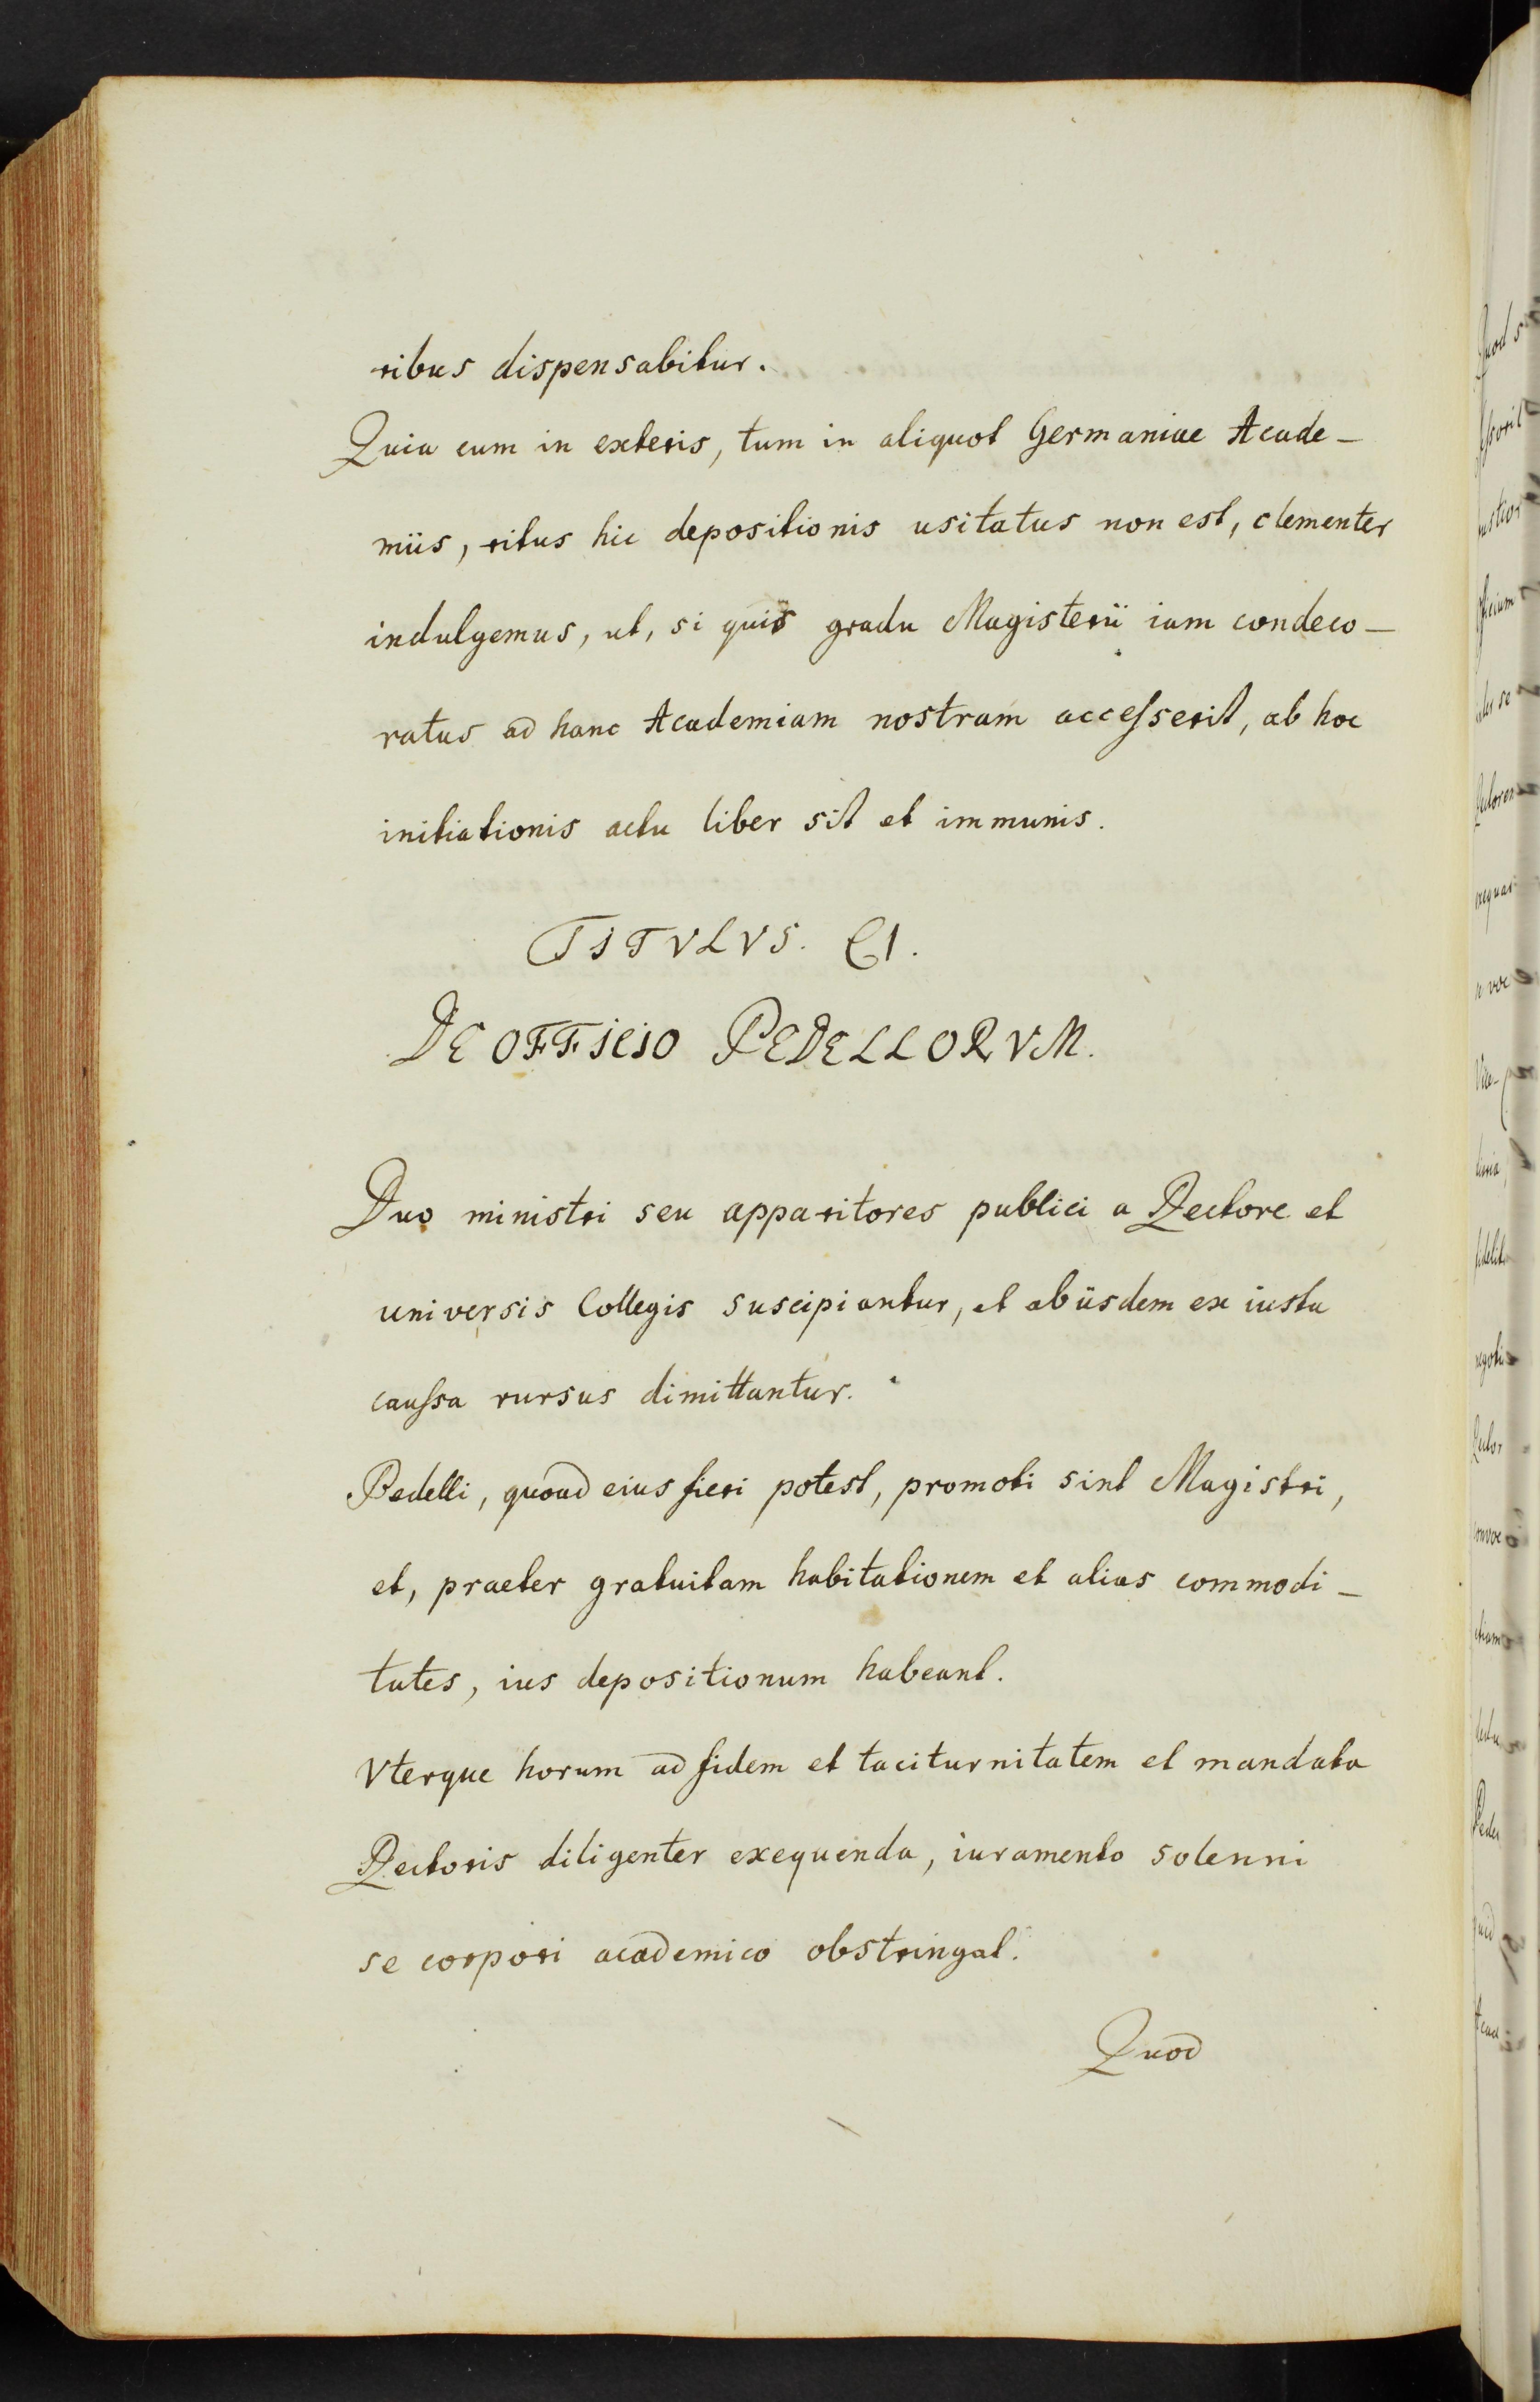 ribus dispensabitur.
Quia cum in exteris, tum in aliquot Germaniae Acade-
miis, ritus hic depositionis usitatus non est, clementer
indulgemus, ut, si quis gradu Magisterii iam condeco-
ratus ad hanc Academiam nostram accesserit, ab hoc
initiationis actu liber sit et immunis.
TITVLVS. CI.
DE OFFICIO PEDELLORVM.
Duo ministri seu apparitores publici a Rectore et
universis Collegis suscipiantur, et ab iisdem ex iusta
caussa rursus dimittantur.
Pedelli, quoad eius fieri potest, promoti sint Magistri,
et, praeter gratuitam habitationem et alias commodi-
tates, ius depositionum habeant.
Vterque horum ad fidem et taciturnitatem et mandata
Rectoris diligenter exequenda, iuramento solenni
se corpori academico obstringat.
Quod